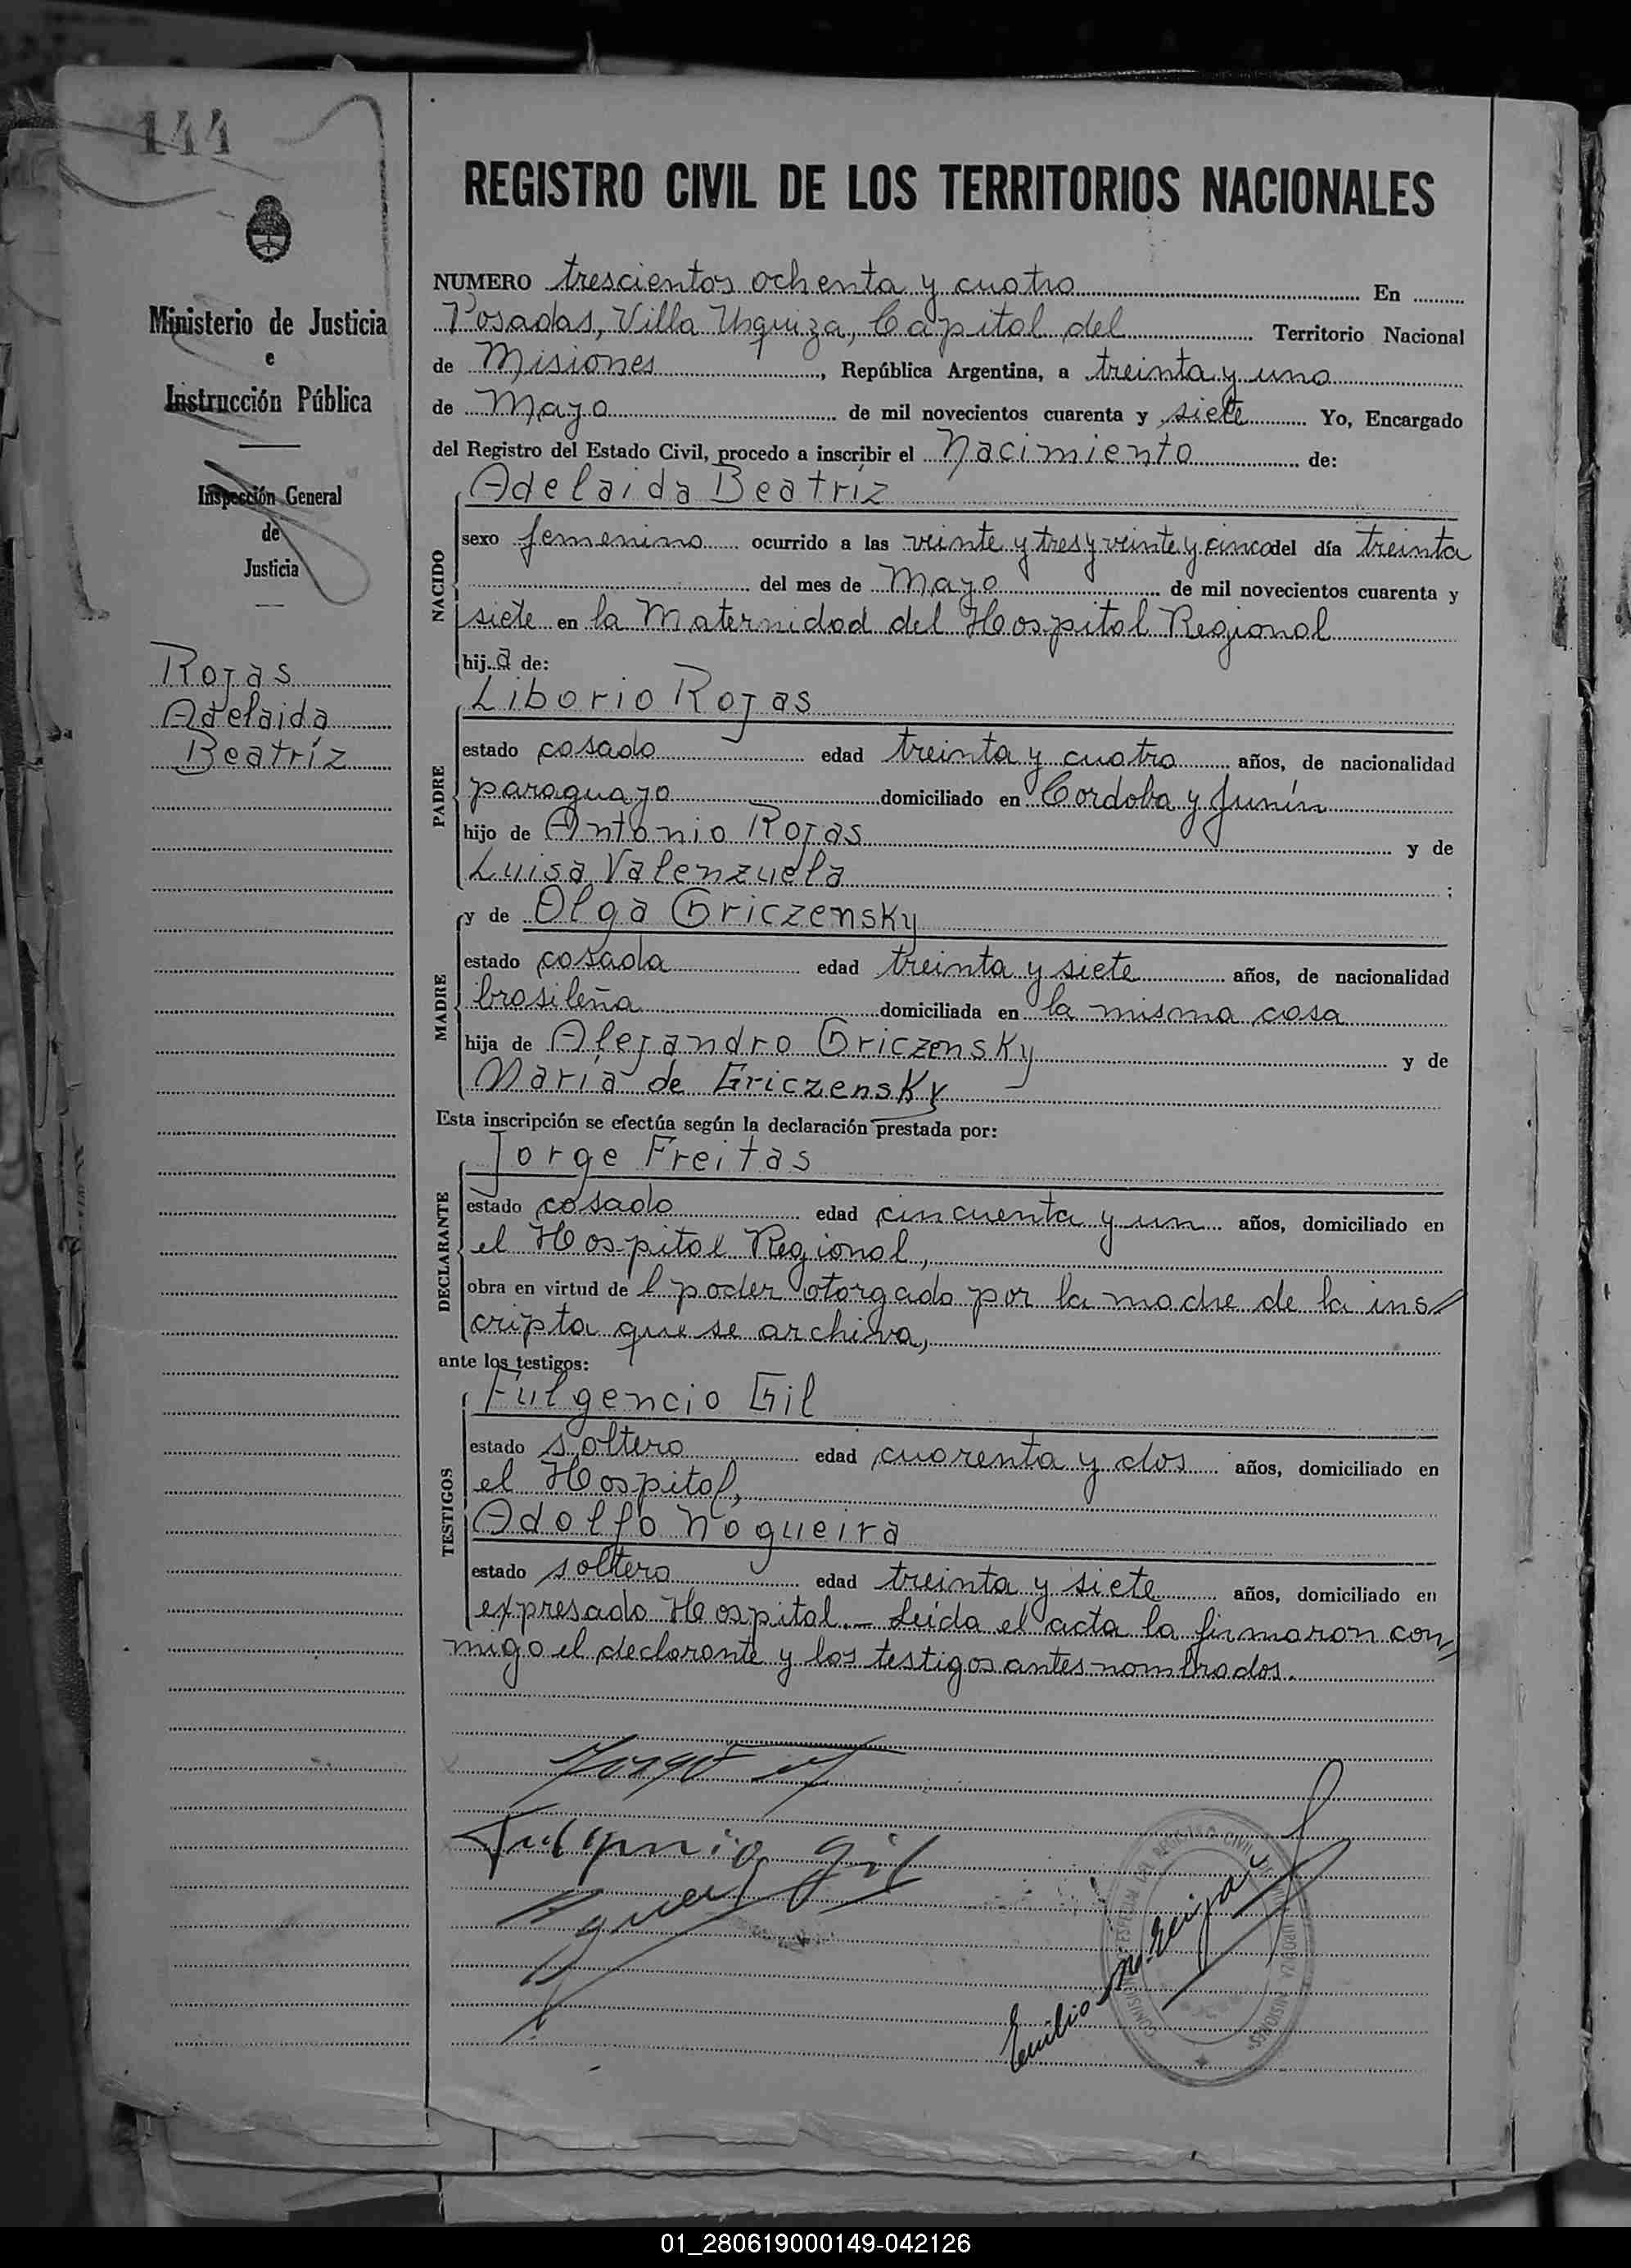 144
Ministerio de Justicia
e
Instrucción Pública
Inspección General
de
Justicia
Rojas
Adelaida
Beatríz
REGISTRO CIVIL DE LOS TERRITORIOS NACIONALES
NUMERO trescientos ochenta y cuatro En
Posadas, Villa Urquiza, Capital del Territorio Nacional
de Misiones, República Argentina, a treinta y uno
de Mayo de mil novecientos cuarenta y siete Yo, Encargado
del Registro del Estado Civil, procedo a inscribir el Nacimiento de:
Adelaida Beatríz
NACIDO
sexo femenino ocurrido a las veinte y tres y veinte y cinco del día treinta
del mes de Mayo de mil novecientos cuarenta y
siete en la Maternidad del Hospital Regional
hija de:
Liborio Rojas
PADRE
estado casado edad treinta y cuatro años, de nacionalidad
paraguayo domiciliado en Cordoba y Junín
hijo de Antonio Rojas y de
Luisa Valenzuela ;
y de Olga Griczensky
MADRE
estado casada edad treinta y siete años, de nacionalidad
brasileña domiciliada en la misma casa
hija de Alejandro Griczensky y de
María de Griczensky
Esta inscripción se efectúa según la declaración prestada por:
Jorge Freitas
DECLARANTE
estado casado edad cincuenta y un años, domiciliado en
el Hospital Regional,
obra en virtud del poder otorgado por la madre de la ins//
cripta que se archiva,
ante los testigos:
Fulgencio Gil
TESTIGOS
estado soltero edad cuarenta y dos años, domiciliado en
el Hospital,
Adolfo Nogueira
estado soltero edad treinta y siete años, domiciliado en
expresado Hospital.- Leída el acta la firmaron con//
migo el declarante y los testigos antes nombrados.
gil
Emilio
01_280619000149-042126